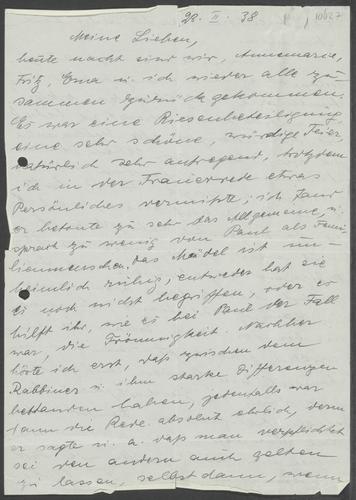 28. II. 38
Meine Lieben,
heute nacht sind wir, Annemarie,
Fritz, Erna u. ich wieder alle zu
sammen zurückgekommen.
Es war eine Riesenbeteiligung
eine sehr schöne, würdige Feier,
natürlich sehr aufregend, trotzdem
ich in der Trauerrede etwas
Persönliches vermisste; ich fand
er betonte zu sehr das Allgemeine, u.
sprach zu wenig von Paul als Fami
lienmenschen. Das Mädel ist un
heimlich ruhig, entweder hat sie
es noch nicht begriffen, oder es
hilft ihr, wie es bei Paul der Fall
war, die Frömmigkeit. Nachher
hörte ich erst, daß zwischen dem
Rabbiner u. ihm starke Differenzen
bestanden haben, jedenfalls war
dann die Rede absolut ehrlich, denn
er sagte u. a. daß man verpflichtet
sei den andern auch gelten
zu lassen, selbst dann, wenn